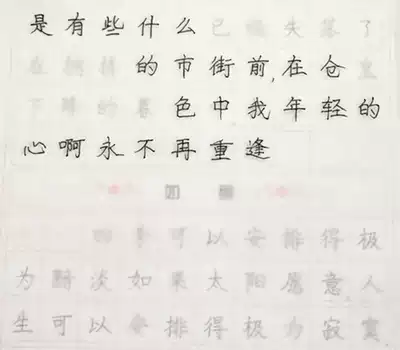 是有些什么已经失落了
在拥挤的市街前,在仓皇
下降的暮色中我年轻的
心啊永不再重逢
四季可以安排得极
为黯淡如果太阳愿意人
生可以安排得极为寂寞